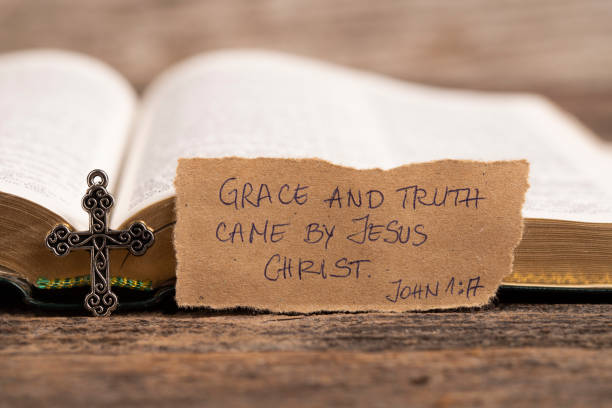 GRACE AND TRUTH
CAME BY JESUS
CHRIST.
JOHN 1:17